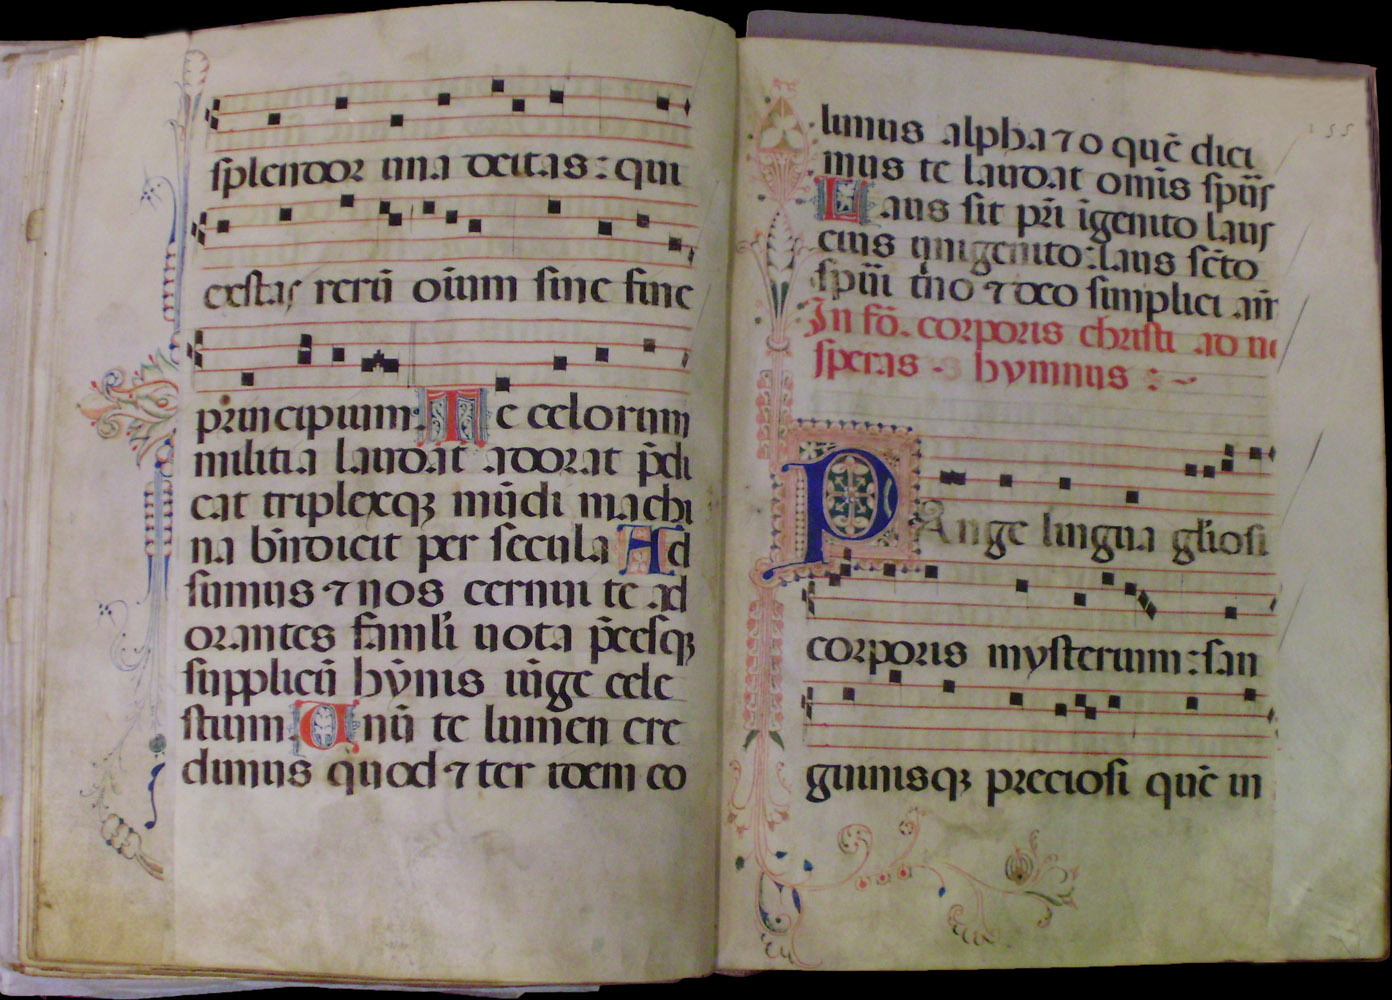 splendor una deitas : qui
exstas rerū oīum sine fine
principium : Te celorum
militia laudat adorat p̄di
cat triplexqꝫ mūdi machi
na bn̄dicit per secula Ad
sumus ⁊ nos cernui te ad
orantes famuli uota p̄cesqꝫ
supplicū hȳnis iūge cele
stium Unū te lumen cre
dimus quod ⁊ ter idem co
limus alpha ⁊ o quē dici
mus te laudat omīs spūs
Laus sit pr̄i īgenito laus
eius unigenito : laus sc̄to
spūi t̄no ⁊ deo simplici am̄
In fō. corporis christi ad ue
speras hymnus :~
PAnge lingua gl̄iosi
corporis mysterium : san
guinisqꝫ preciosi quē in
155